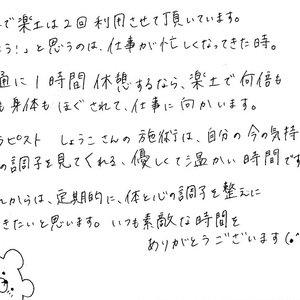 で楽土は2回利用させて頂いています。
こう!」と思うのは、仕事が忙しくなってきた時。
通に1時間休憩するなら、楽土で何倍も
も身体もほぐされて、仕事に向かいます。
ラピスト しょうこさんの施術は、自分の今の気持
の調子を見てくれる、優しくて温かい時間です
れからは、定期的に、体と心の調子を整えに
きたいと思います。いつも素敵な時間を
ありがとうございます